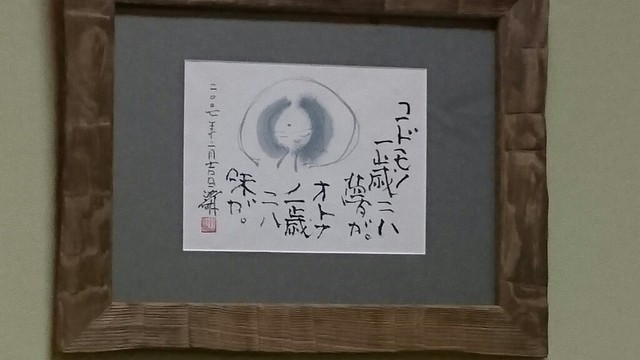 コドモノ
一歳ニハ
夢が。
オトナ
ノ一歳
ニハ
味が。
二〇〇七年十二月吉日